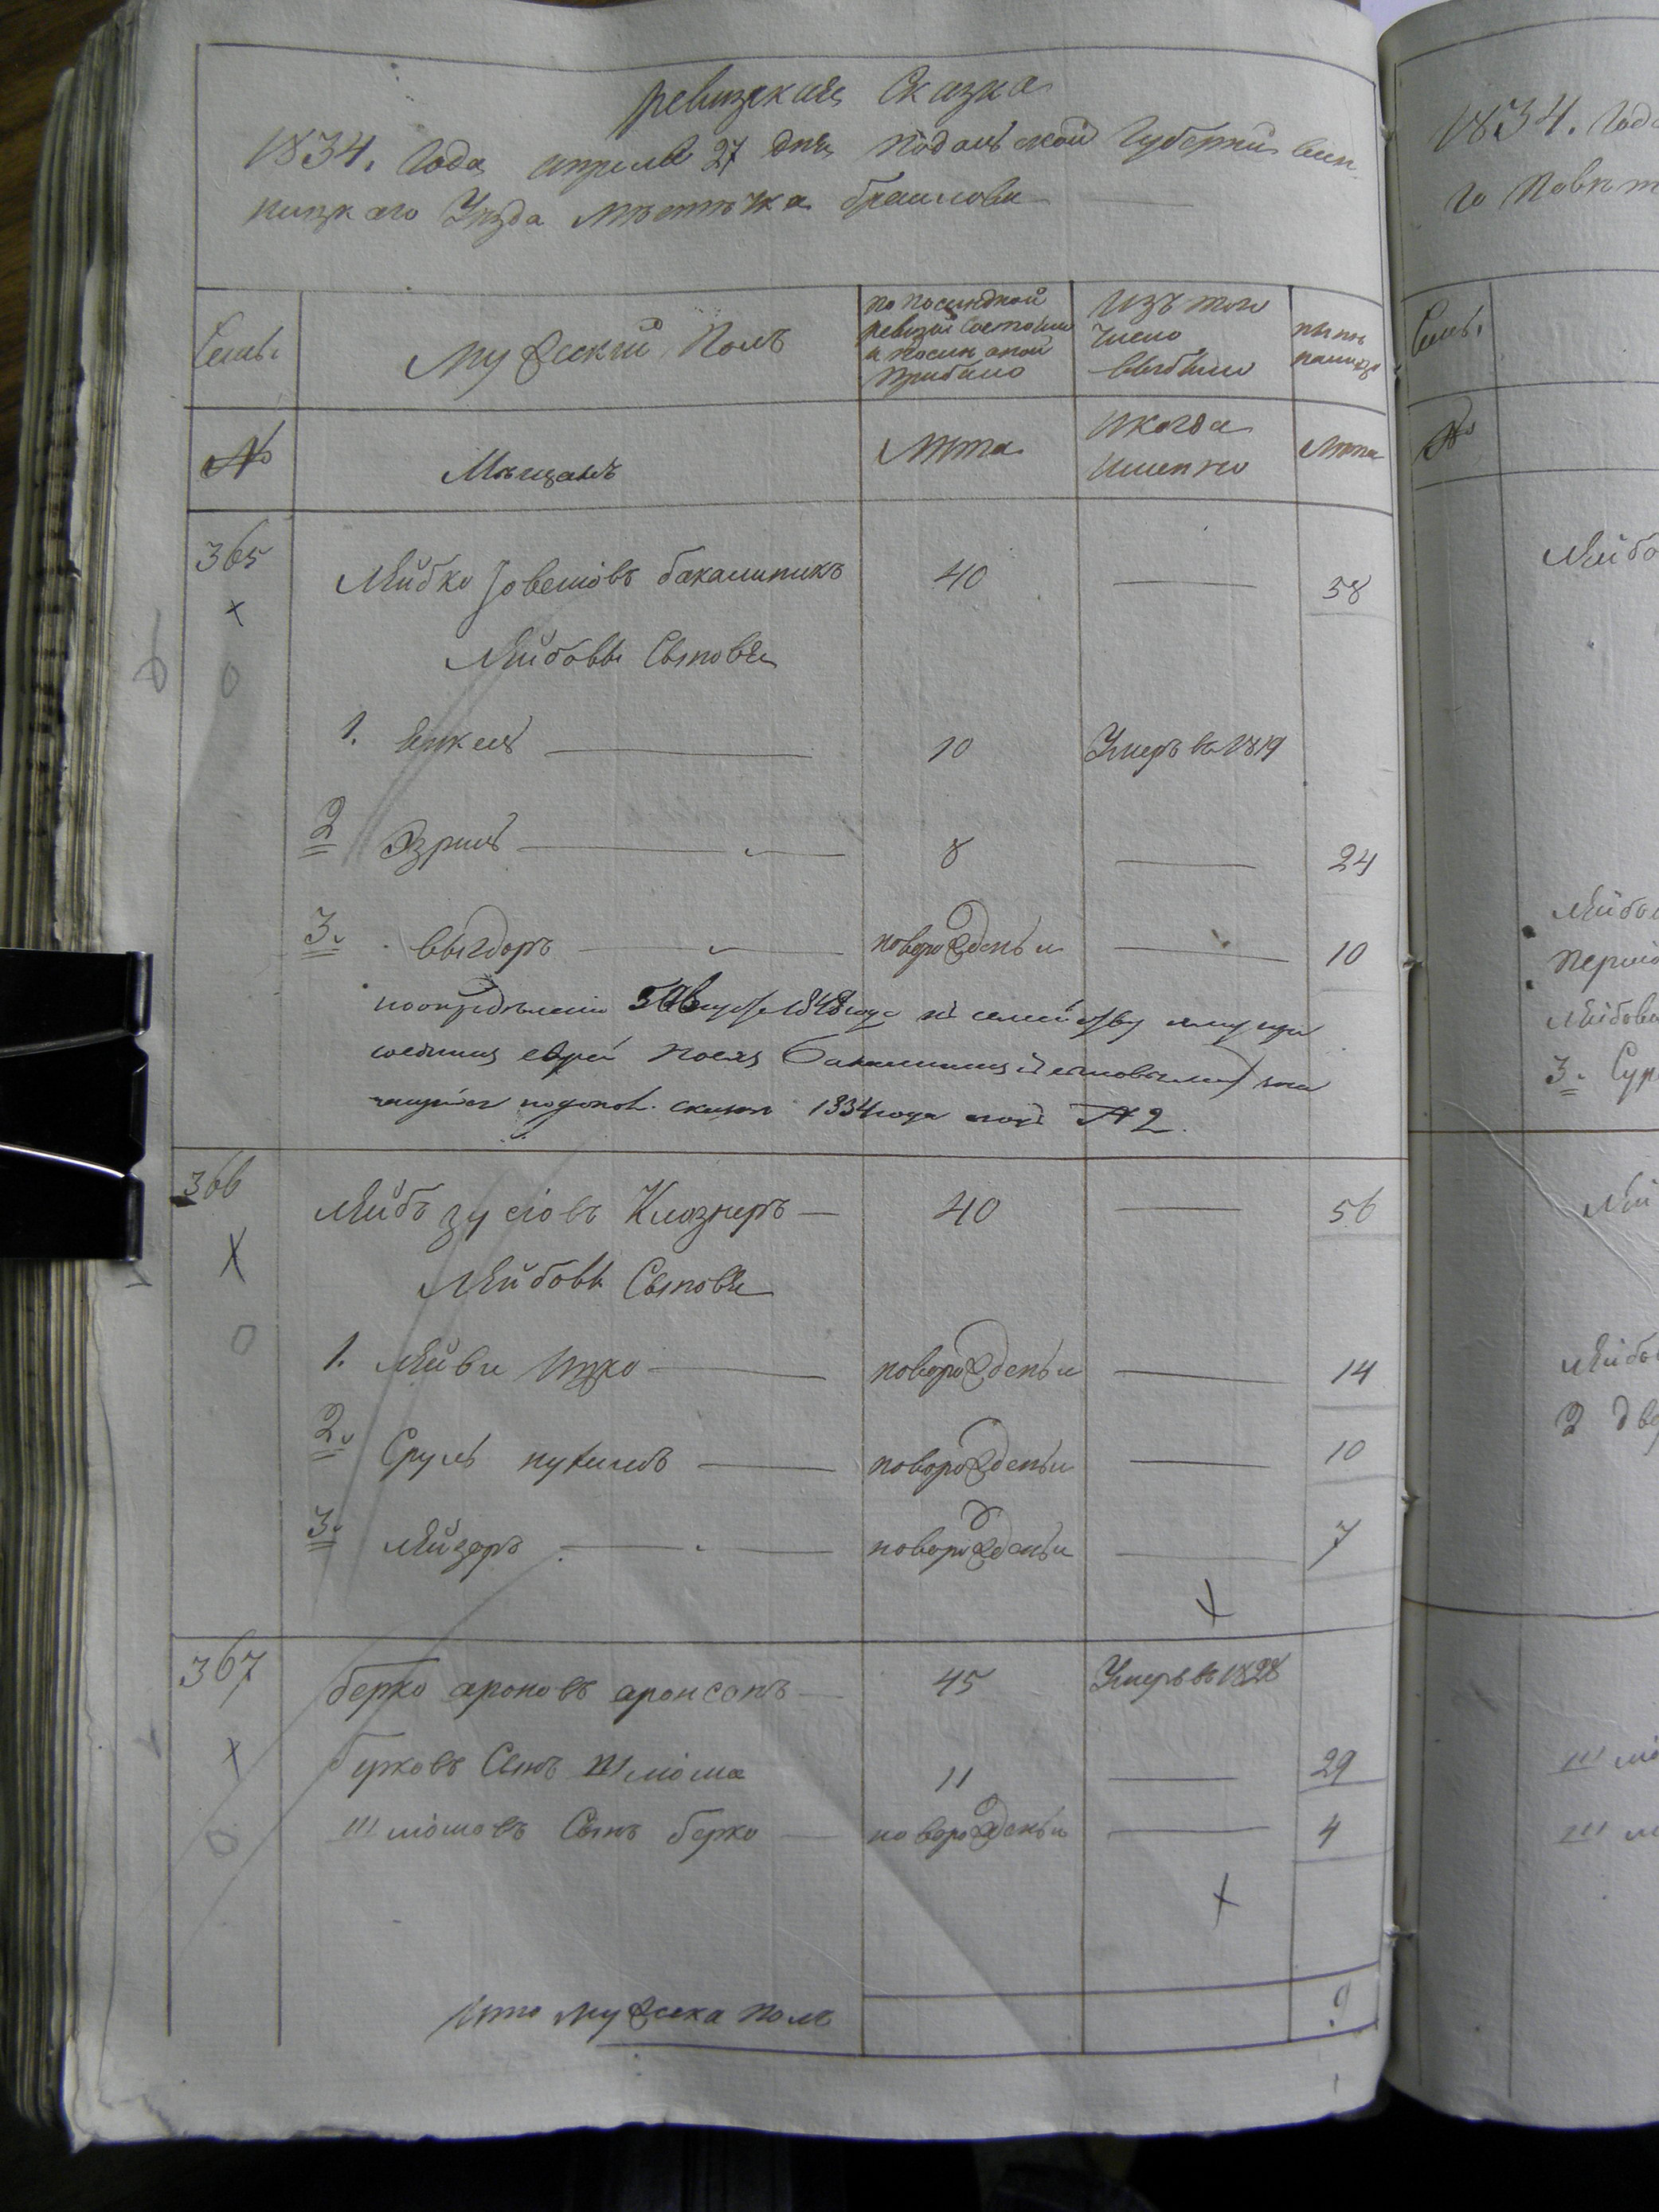 ревизская Сказка
1834. Года апреля 27 дня Подольской Губернии вин
ницкого Уезда Местечка браилова
Семьи
Мужеский Полъ
по последней ревизии состояло и после оной прибыло
Изъ того число выбыло
ныне налицо
№
Мещанъ
Лета
Когда именно
Лета
365
Лейбко Іовешовъ бакалиникъ
40
58
Лейбовы Сыновя
1. Янкель
10
Умеръ въ 1819
2 Эзриль
8
24
3. Выгдоръ
новорожденъи
10
по определению 5 Августа 1848 года къ семейству сему при
еврей
сказке 1834 года подъ № 2.
366
Лейбъ зусіовъ Клезнеръ
40
56
Лейбовы Сыновя
1. Лейви Ицко
новорожденъи
14
2. Сруль
новорожденъи
10
3. Лейзоръ
новорожденъи
7
367
берко ароновъ аронсонъ
45
Умеръ въ 1828
берковъ Сынъ Шліома
11
29
Шліомовъ Сынъ берко
новорожденъи
4
Итто Мужеска пола
9
1834. Года
го Повет
Семьи
№
Лейбо
Лейбо
Лейбови
3. Сур
Лей
Лейбо
2 Две